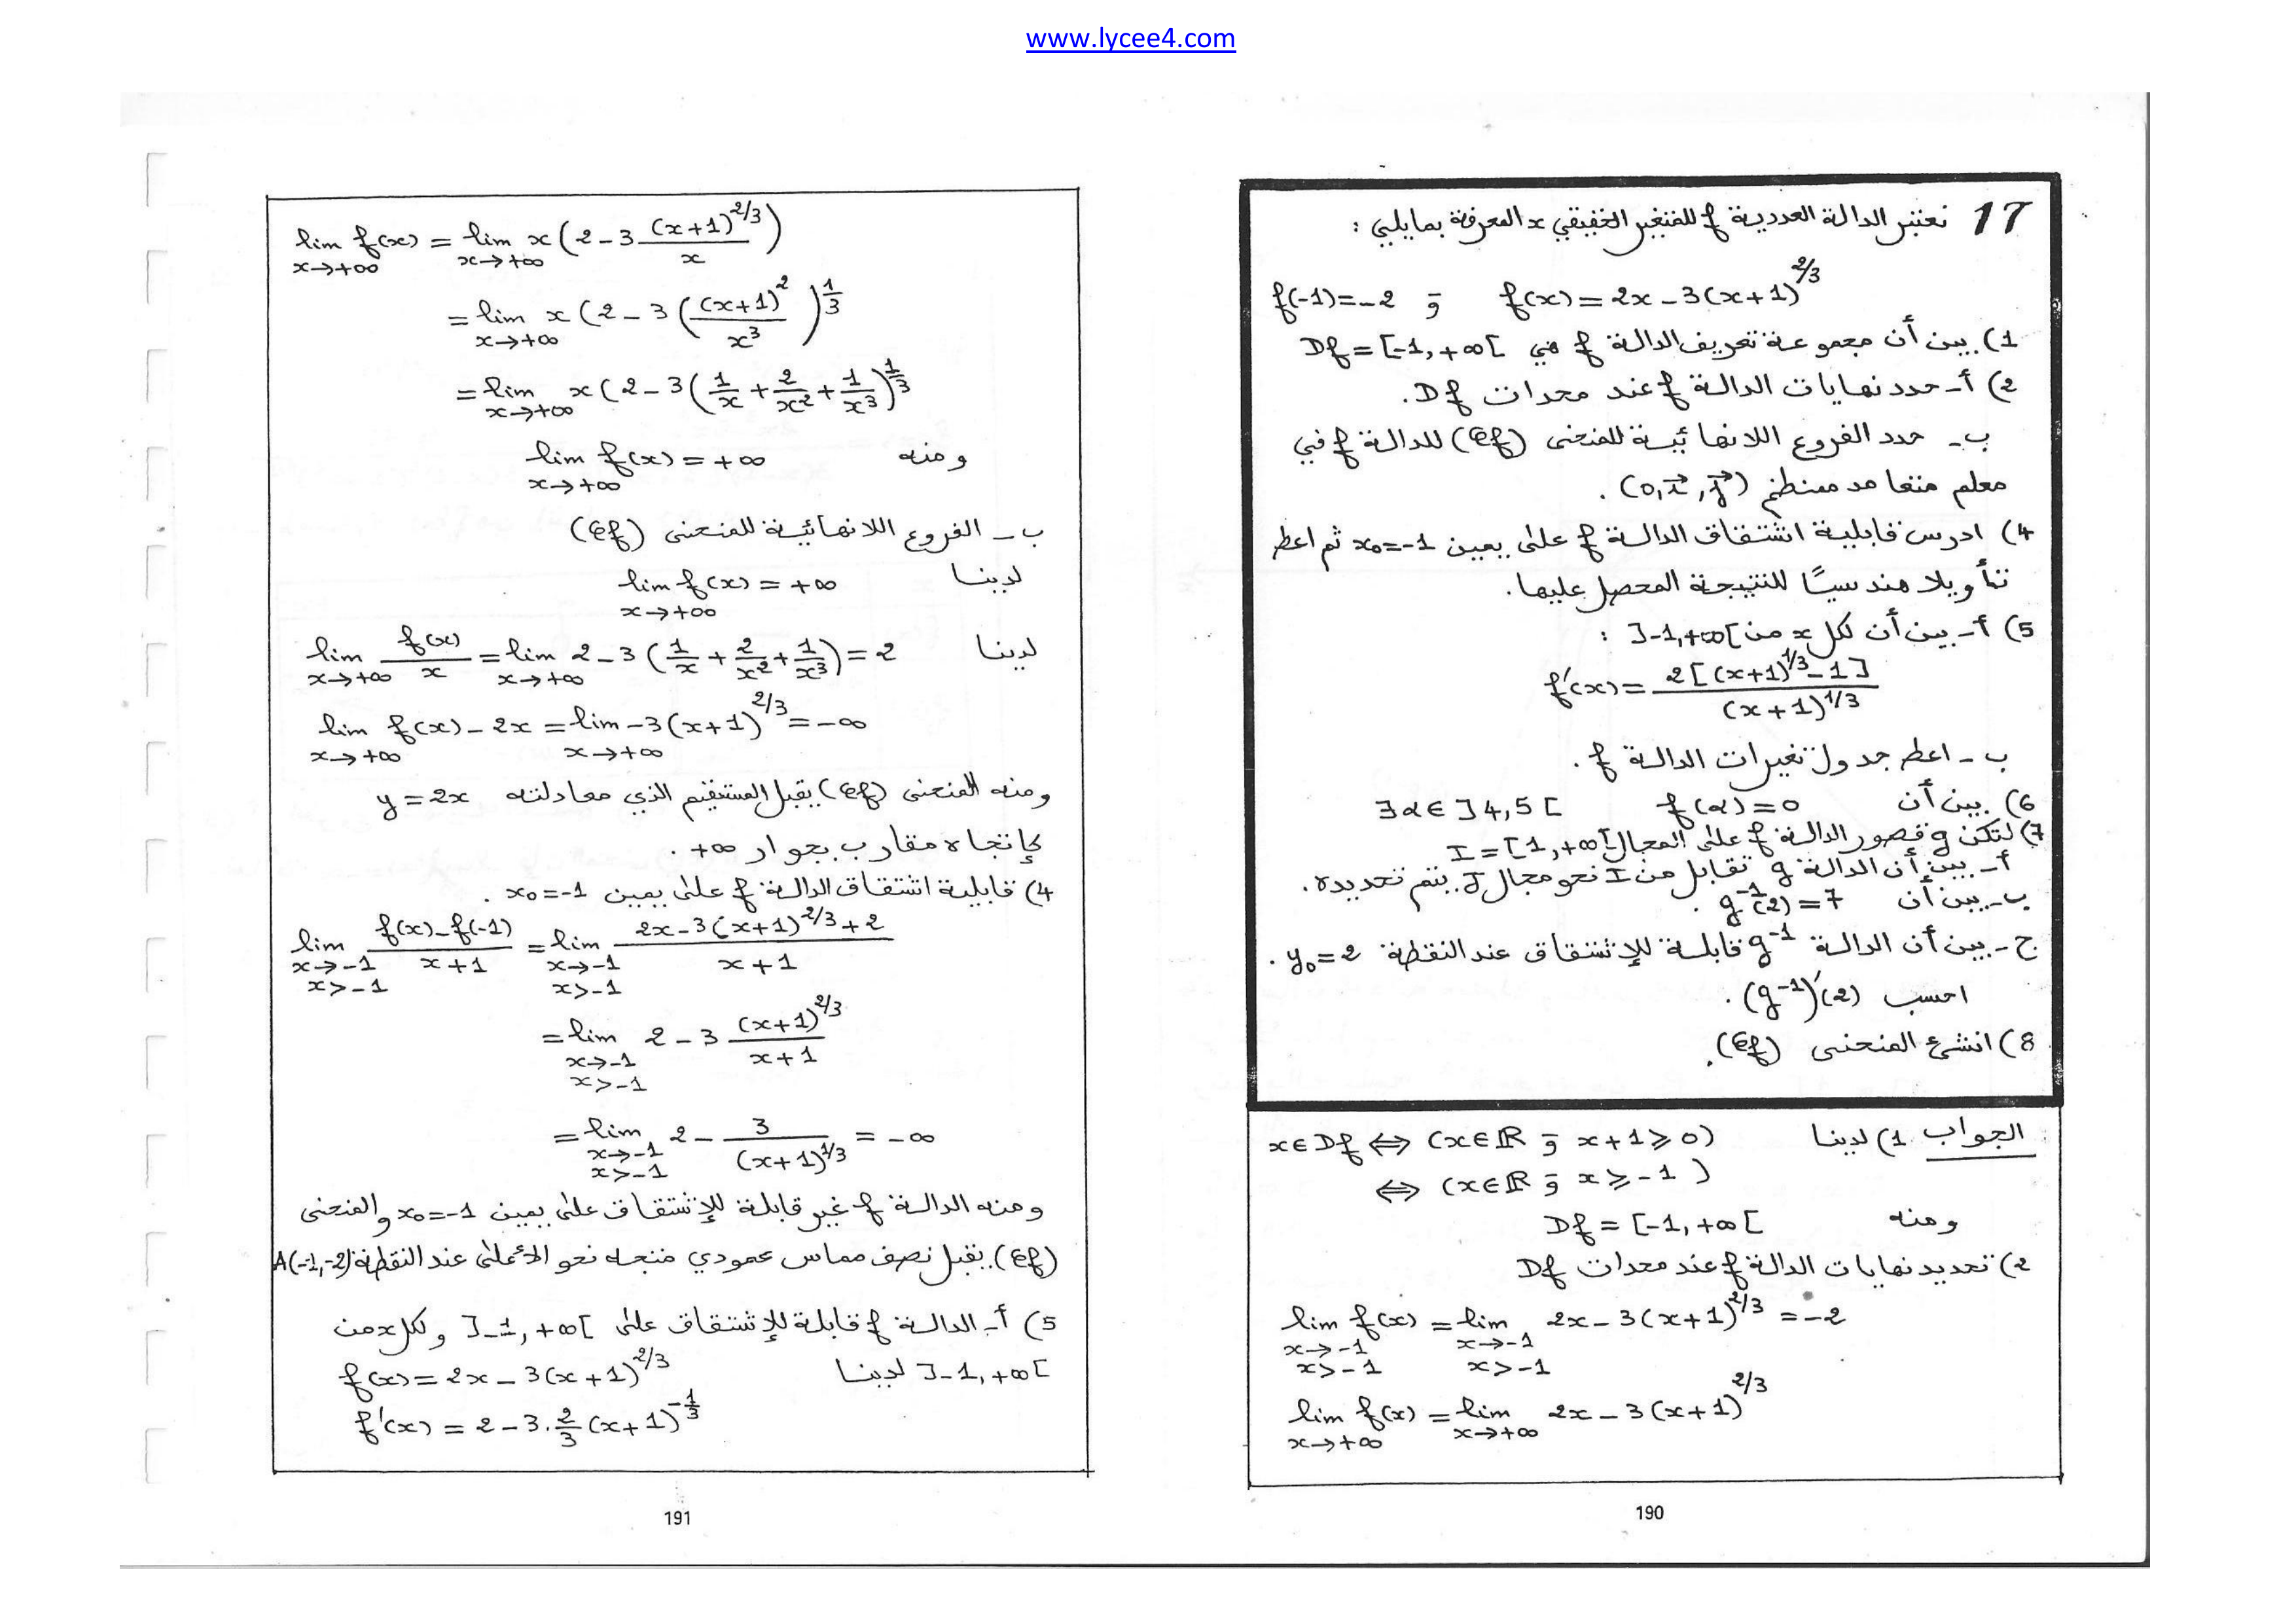 www.lycee4.com
17 نعتبر الدالة العددية f للمتغير الحقيقي x المعرفة بمايلي :
f(-1)=-2 و f(x)=2x-3(x+1)^{2/3}
1) بين أن مجموعة تعريف الدالة f هي Df=[-1,+∞[
2) أ- حدد نهايات الدالة f عند محدات Df.
ب- حدد الفروع اللانهائية للمنحنى (Cf) للدالة f في
معلم متعامد ممنظم (O,i→,j→).
4) ادرس قابلية اشتقاق الدالة f على يمين x₀=-1 ثم اعط
تأويلا هندسيًا للنتيجة المحصل عليها.
5) أ- بين أن لكل x من ]-1,+∞[ :
f'(x)=2[(x+1)^{1/3}-1]/(x+1)^{1/3}
ب- اعط جدول تغيرات الدالة f.
6) بين أن f(α)=0 ∃α∈]4,5[
7) لتكن g قصور الدالة f على المجال I=[1,+∞[
أ- بين أن الدالة g تقابل من I نحو مجال J يتم تحديده.
ب- بين أن g^{-1}(2)=7.
ج- بين أن الدالة g^{-1} قابلة للإشتقاق عند النقطة y₀=2.
احسب (g^{-1})'(2).
8) انشئ المنحنى (Cf).
الجواب 1) لدينا x∈Df ⇔ (x∈ℝ و x+1⩾0)
⇔ (x∈ℝ و x⩾-1)
ومنه Df=[-1,+∞[
2) تحديد نهايات الدالة f عند محدات Df
lim_{x→-1, x>-1} f(x) = lim_{x→-1, x>-1} 2x-3(x+1)^{2/3} = -2
lim_{x→+∞} f(x) = lim_{x→+∞} 2x-3(x+1)^{2/3}
190
lim_{x→+∞} f(x) = lim_{x→+∞} x(2-3 (x+1)^{2/3}/x)
= lim_{x→+∞} x(2-3((x+1)^2/x^3)^{1/3}
= lim_{x→+∞} x(2-3(1/x+2/x^2+1/x^3)^{1/3}
ومنه lim_{x→+∞} f(x)=+∞
ب- الفروع اللانهائية للمنحنى (Cf)
لدينا lim_{x→+∞} f(x)=+∞
لدينا lim_{x→+∞} f(x)/x = lim_{x→+∞} 2-3(1/x+2/x^2+1/x^3)=2
lim_{x→+∞} f(x)-2x = lim_{x→+∞} -3(x+1)^{2/3} = -∞
ومنه المنحنى (Cf) يقبل المستقيم الذي معادلته y=2x
كإتجاه مقارب بجوار +∞.
4) قابلية اشتقاق الدالة f على يمين x₀=-1.
lim_{x→-1, x>-1} (f(x)-f(-1))/(x+1) = lim_{x→-1, x>-1} (2x-3(x+1)^{2/3}+2)/(x+1)
= lim_{x→-1, x>-1} 2-3 (x+1)^{2/3}/(x+1)
= lim_{x→-1, x>-1} 2-3/(x+1)^{1/3} = -∞
ومنه الدالة f غير قابلة للإشتقاق على يمين x₀=-1 والمنحنى
(Cf) يقبل نصف مماس عمودي متجه نحو الأعلى عند النقطة A(-1,-2)
5) أ- الدالة f قابلة للإشتقاق على ]-1,+∞[ ولكل x من
]-1,+∞[ لدينا f(x)=2x-3(x+1)^{2/3}
f'(x)=2-3.2/3(x+1)^{-1/3}
191